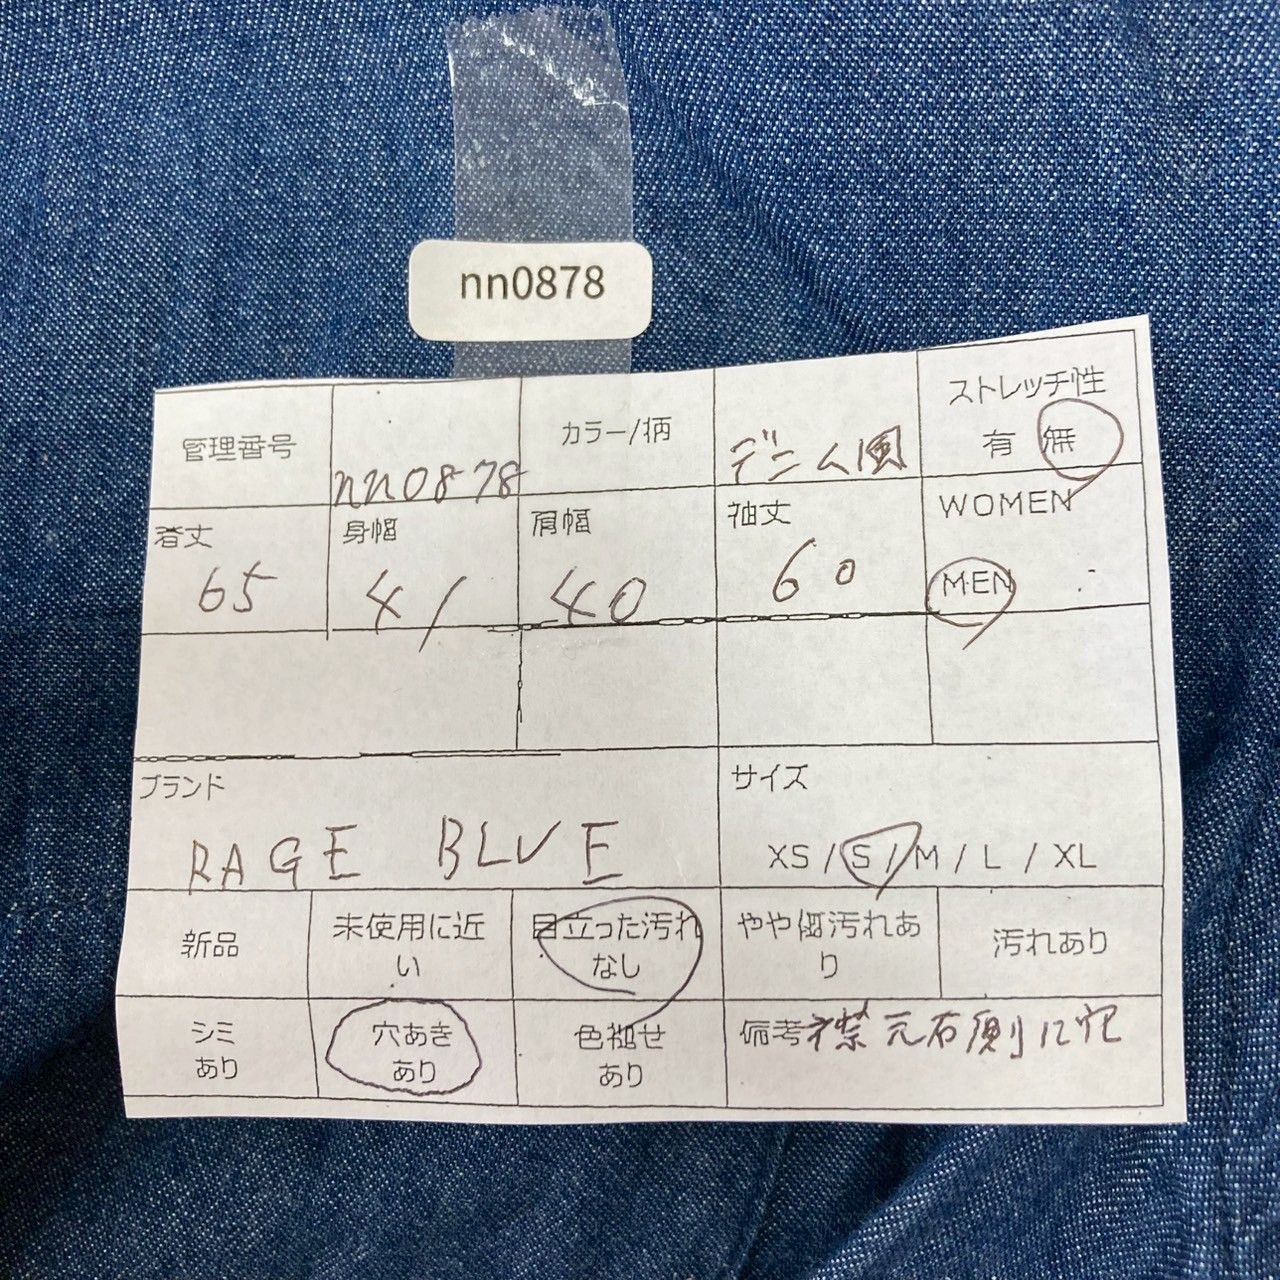 nn0878
管理番号 nn0878 カラー/柄 デニム風 ストレッチ性
有 無
着丈 身幅 肩幅 袖丈 WOMEN
65 41 40 60 MEN
ブランド サイズ
RAGE BLUE XS / S / M / L / XL
新品 未使用に近 目立った汚れ やや傷汚れあ 汚れあり
い なし り
シミ 穴あき 色褪せ 備考 襟元右側に穴
あり あり あり